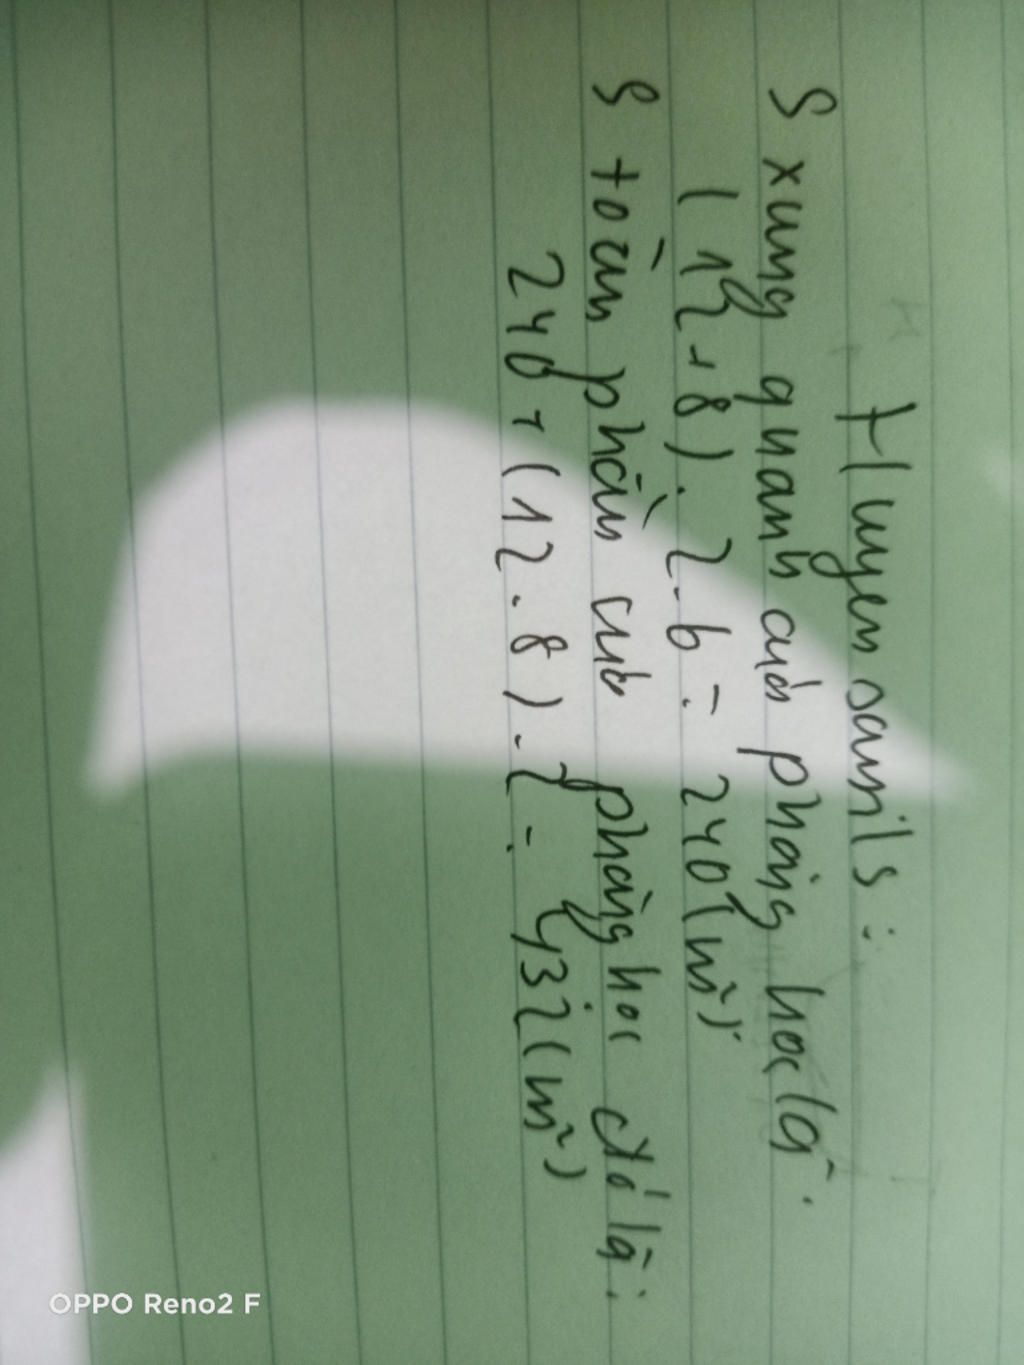 Huyen sanils:
S xung quanh của phòng học là:
(12+8).2.6 = 240 (m²)
S toàn phần cua phòng học đó là:
240 + (12.8).2 = 432 (m²)
OPPO Reno2 F